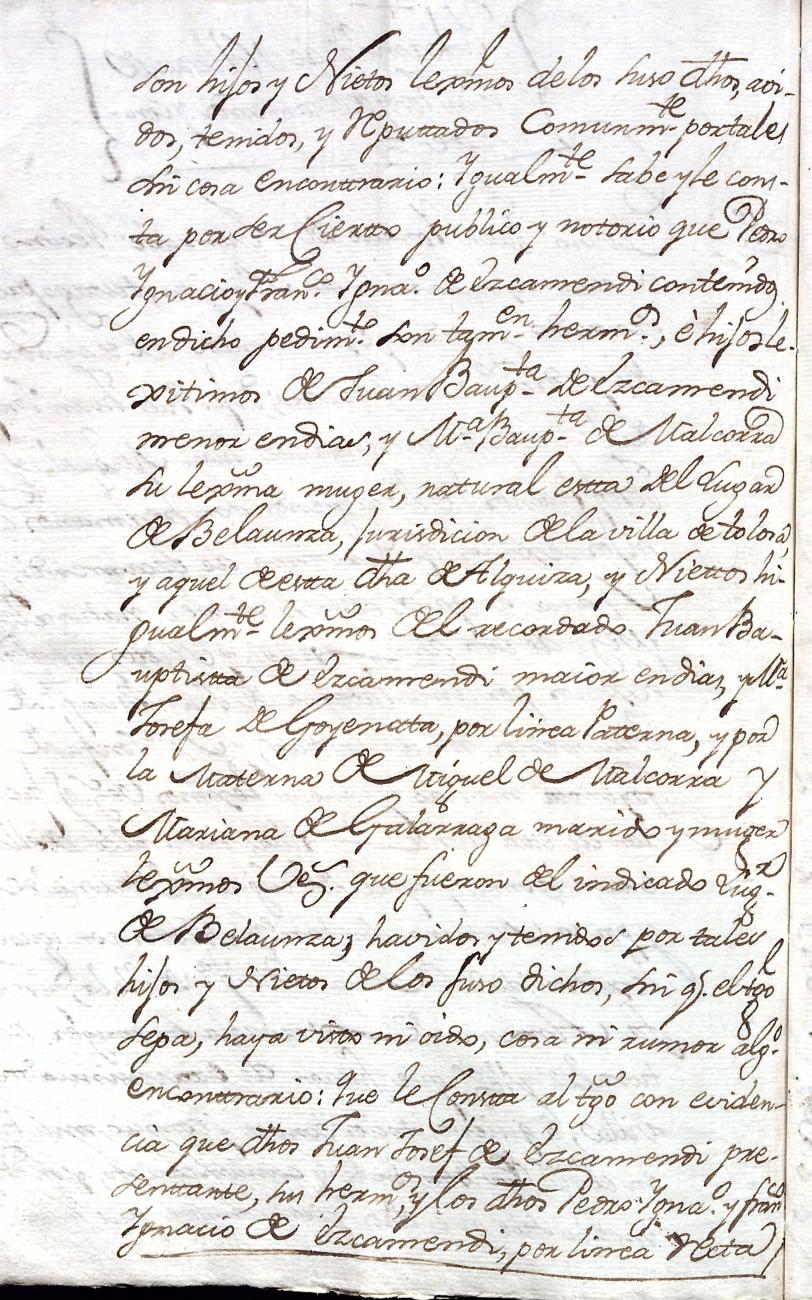 son hijos y Nietos lexmos de los suso dhos, avi-
dos, tenidos, y Reputtados Comunmte portales
sin cosa encontrario: Ygualmte sabe y le cons-
ta por ser Cierto publico y notorio que Pedro
Ygnacio y Franco Ygnao de Ezcamendi contenidos
en dicho pedimto son tamen hermos, è hijos le-
xitimos de Juan Baupta de Ezcamendi
menor endias, y Ma Baupta de Malcorra
su lexma muger, natural estta del Lugar
de Belaunza, Jurisdicion de la villa de tolosa,
y aquel de estta dha de Alquiza, y Niettos hi-
gualmte lexmos del recordado Juan Ba-
uptistta de Ezcamendi maior endias, y Ma
Josefa de Goyenatta, por linea Paterna, y por
la Materna de Miguel de Malcorra y
Mariana de Galarraga marido y muger
lexmos Vezs. que fueron del indicado Lugr
de Belaunza; havidos y tenidos por tales
hijos y Nietos de los suso dichos, sin q. el tgo
sepa, haya visto ni oido, cosa ni rumor algo
enconttrario: Que le Constta al tgo con eviden-
cia que dhos Juan Josef de Ezcamendi pre-
senttante, su hermo, y los dhos Pedro Ygnao y Franco
Ygnacio de Ezcamendi, por linea Recta